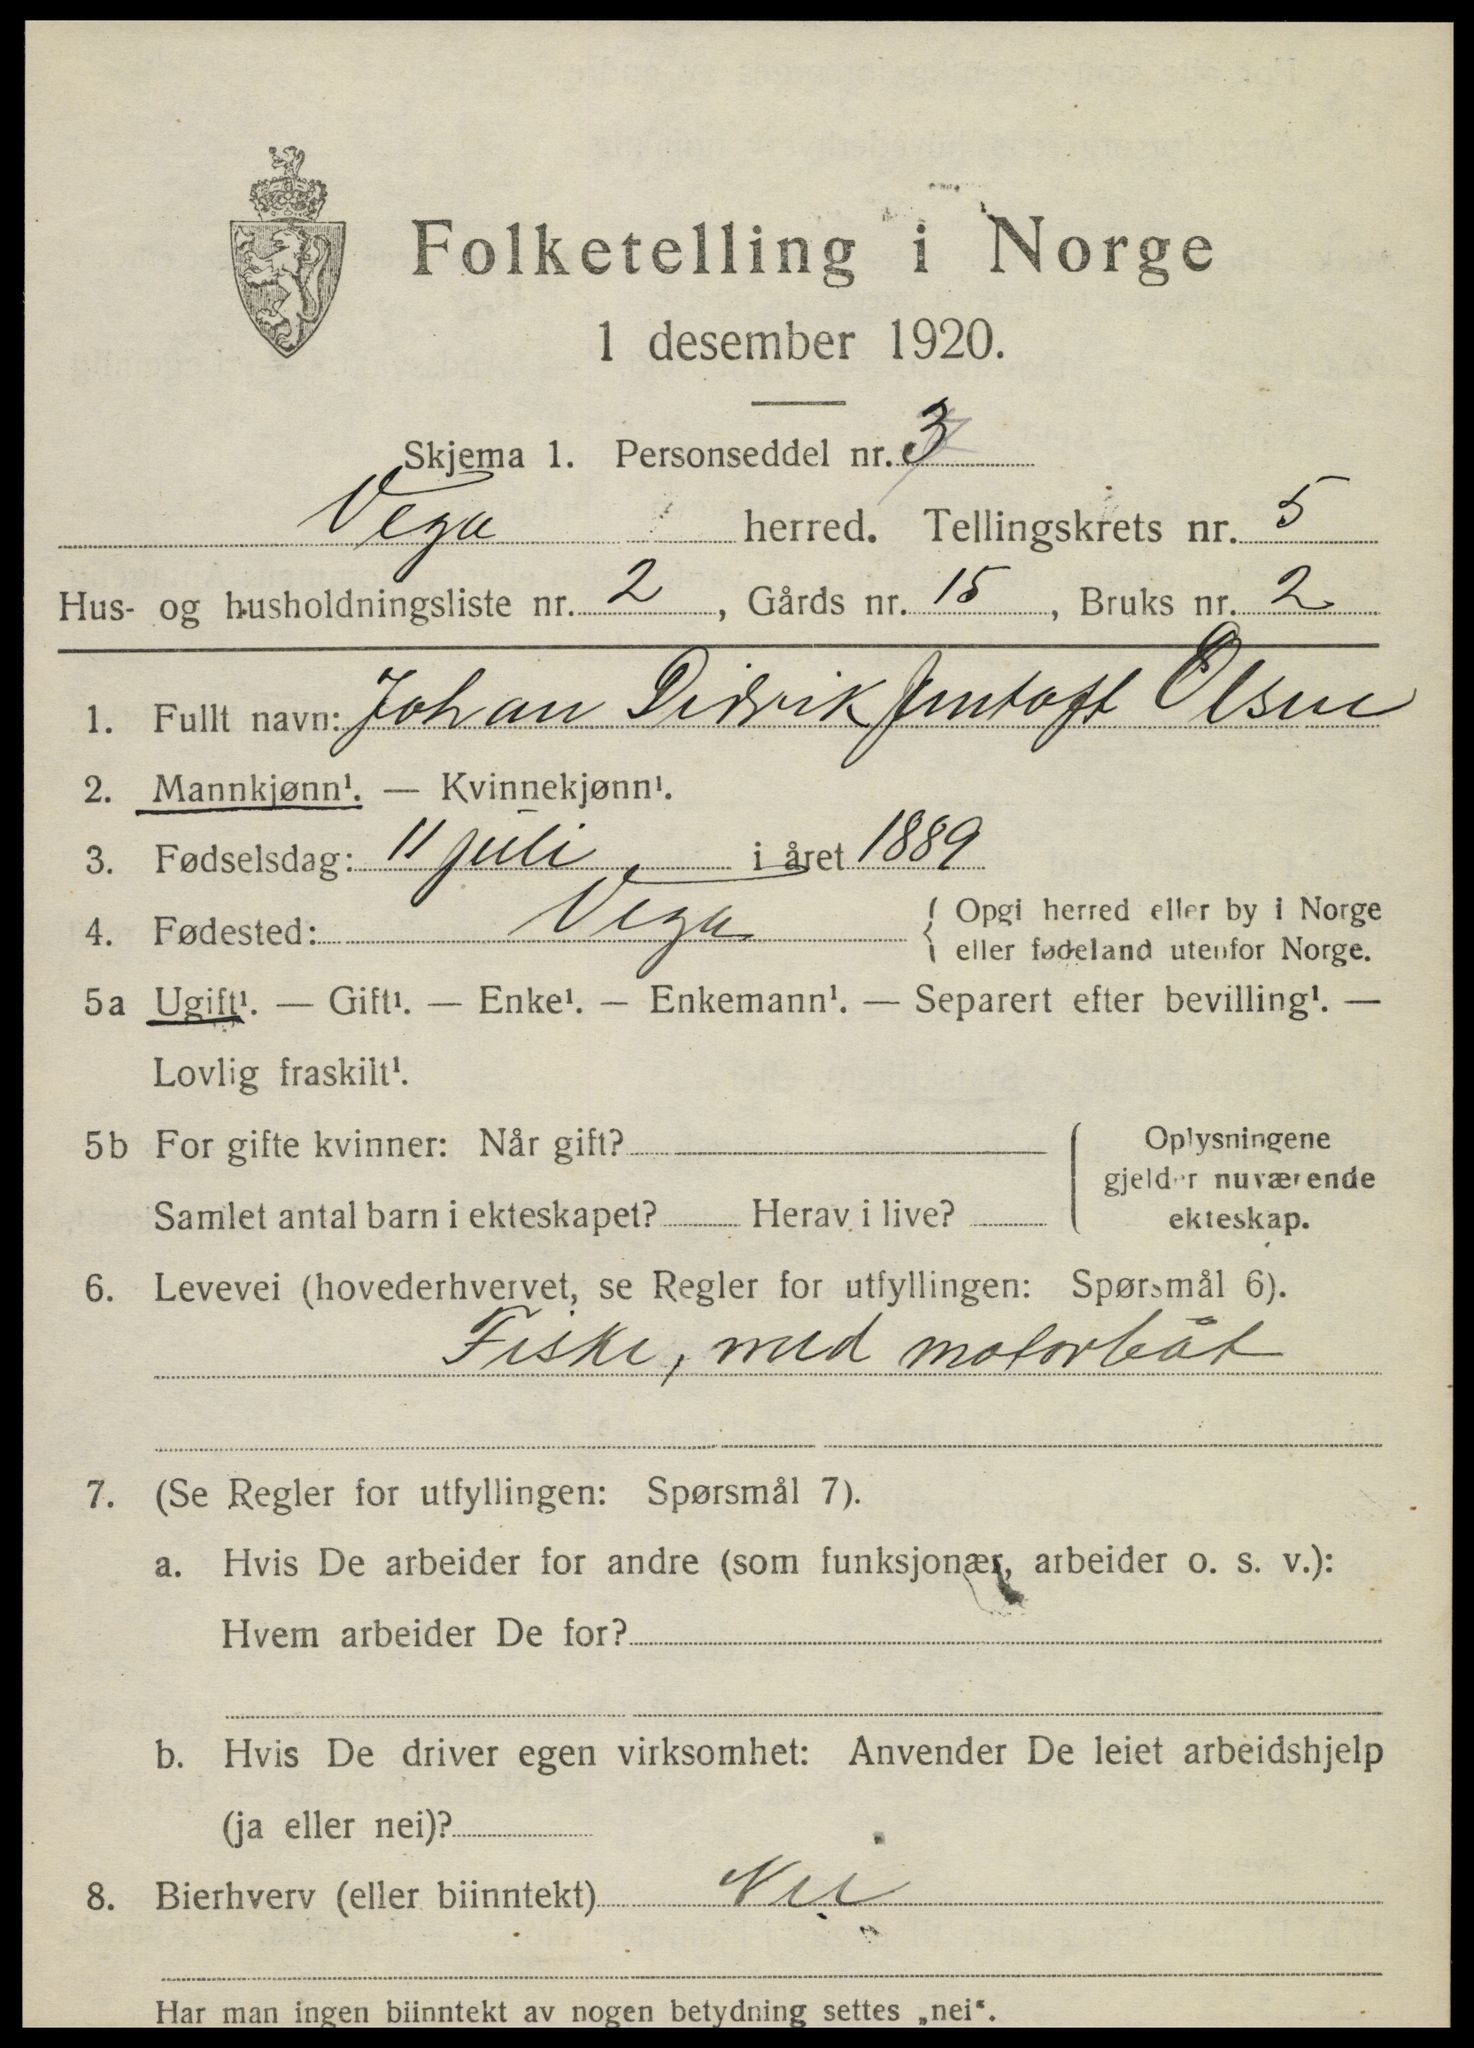 Folketelling i Norge
1 desember 1920.
Skjema 1. Personseddel nr. 3
Vega herred. Tellingskrets nr. 5
Hus- og husholdningsliste nr. 2, Gårds nr. 15, Bruks nr. 2
1. Fullt navn: Johan Didrik Jentoft Olsen
2. Mannkjønn¹. — Kvinnekjønn¹.
3. Fødselsdag: 11 juli i året 1889
4. Fødested: Vega { Opgi herred eller by i Norge
eller fødeland utenfor Norge.
5a Ugift¹. — Gift¹. — Enke¹. — Enkemann¹. — Separert efter bevilling¹. —
Lovlig fraskilt¹.
5b For gifte kvinner: Når gift?
Samlet antal barn i ekteskapet? Herav i live?
Oplysningene
gjelder nuværende
ekteskap.
6. Levevei (hovederhvervet, se Regler for utfyllingen: Spørsmål 6).
Fiske, med motorbåt
7. (Se Regler for utfyllingen: Spørsmål 7).
a. Hvis De arbeider for andre (som funksjonær, arbeider o. s. v.):
Hvem arbeider De for?
b. Hvis De driver egen virksomhet: Anvender De leiet arbeidshjelp
(ja eller nei)?
8. Bierhverv (eller biinntekt) Nei
Har man ingen biinntekt av nogen betydning settes „nei“.